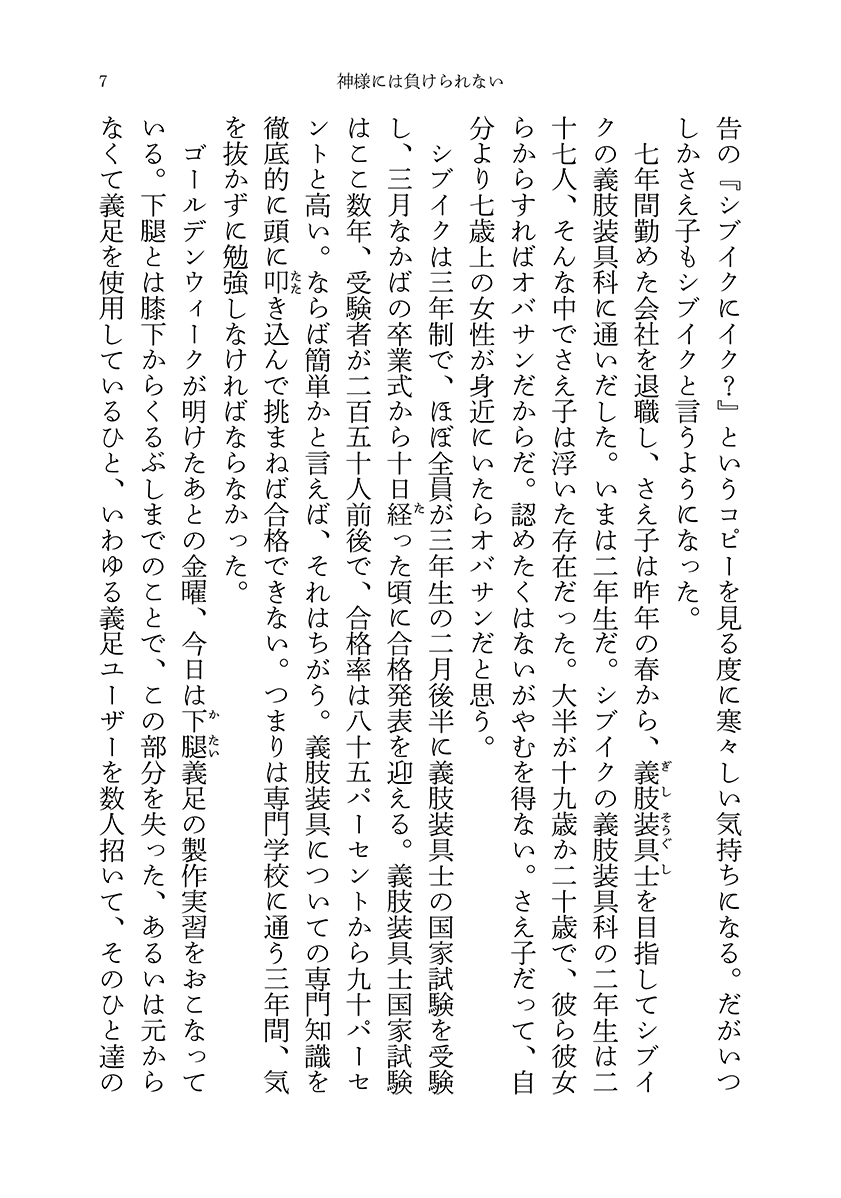 7
神様には負けられない
告の『シブイクにイク？』というコピーを見る度に寒々しい気持ちになる。だがいつ
しかさえ子もシブイクと言うようになった。
七年間勤めた会社を退職し、さえ子は昨年の春から、義肢装具士を目指してシブイ
ぎしそうぐし
クの義肢装具科に通いだした。いまは二年生だ。シブイクの義肢装具科の二年生は二
十七人、そんな中でさえ子は浮いた存在だった。大半が十九歳か二十歳で、彼ら彼女
らからすればオバサンだからだ。認めたくはないがやむを得ない。さえ子だって、自
分より七歳上の女性が身近にいたらオバサンだと思う。
シブイクは三年制で、ほぼ全員が三年生の二月後半に義肢装具士の国家試験を受験
し、三月なかばの卒業式から十日経った頃に合格発表を迎える。義肢装具士国家試験
た
はここ数年、受験者が二百五十人前後で、合格率は八十五パーセントから九十パーセ
ントと高い。ならば簡単かと言えば、それはちがう。義肢装具についての専門知識を
徹底的に頭に叩き込んで挑まねば合格できない。つまりは専門学校に通う三年間、気
たた
を抜かずに勉強しなければならなかった。
ゴールデンウィークが明けたあとの金曜、今日は下腿義足の製作実習をおこなって
かたい
いる。下腿とは膝下からくるぶしまでのことで、この部分を失った、あるいは元から
なくて義足を使用しているひと、いわゆる義足ユーザーを数人招いて、そのひと達の